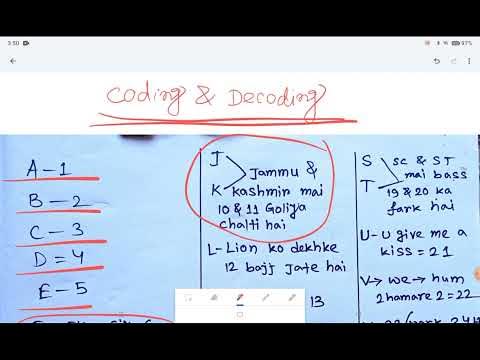 3:50
97%
Coding & Decoding
A-1
B-2
C-3
D=4
E-5
J
K
Jammu &
kashmir mai
10 & 11 Goliya
chalti hai
L- Lion ko dekhke
12 bajj jate hai
13
S
T
SC & ST
mai bass
19 & 20 ka
fark hai
U- U give me a
kiss = 21
V→ we → hum
2 hamare 2 = 22